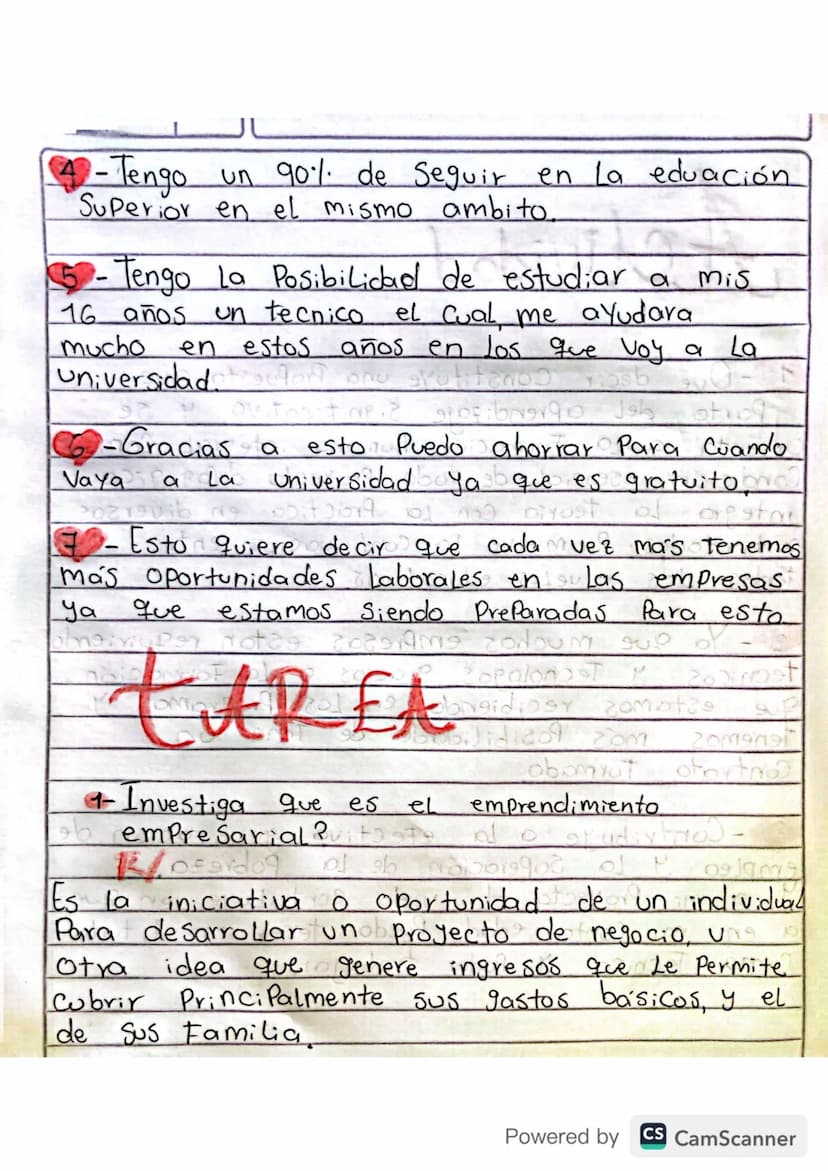 4 - Tengo un 90% de seguir en la eduación
Superior en el mismo ambito.
5 - Tengo la Posibilidad de estudiar a mis
16 años un tecnico el cual, me ayudara
mucho en estos años en los que voy a la
universidad.
6 - Gracias a esto Puedo ahorrar Para cuando
vaya a la universidad ya que es gratuito.
7 - Esto quiere decir que cada vez más tenemos
más oportunidades laborales en las empresas
ya que estamos siendo preparadas para esto
tAREA
1- Investiga que es el emprendimiento
empresarial?
R/
Es la iniciativa o oportunidad de un individual
Para desarrollar un proyecto de negocio, u
otra idea que genere ingresos que le permite
cubrir principalmente sus gastos básicos, y el
de sus familia.
Powered by CS CamScanner